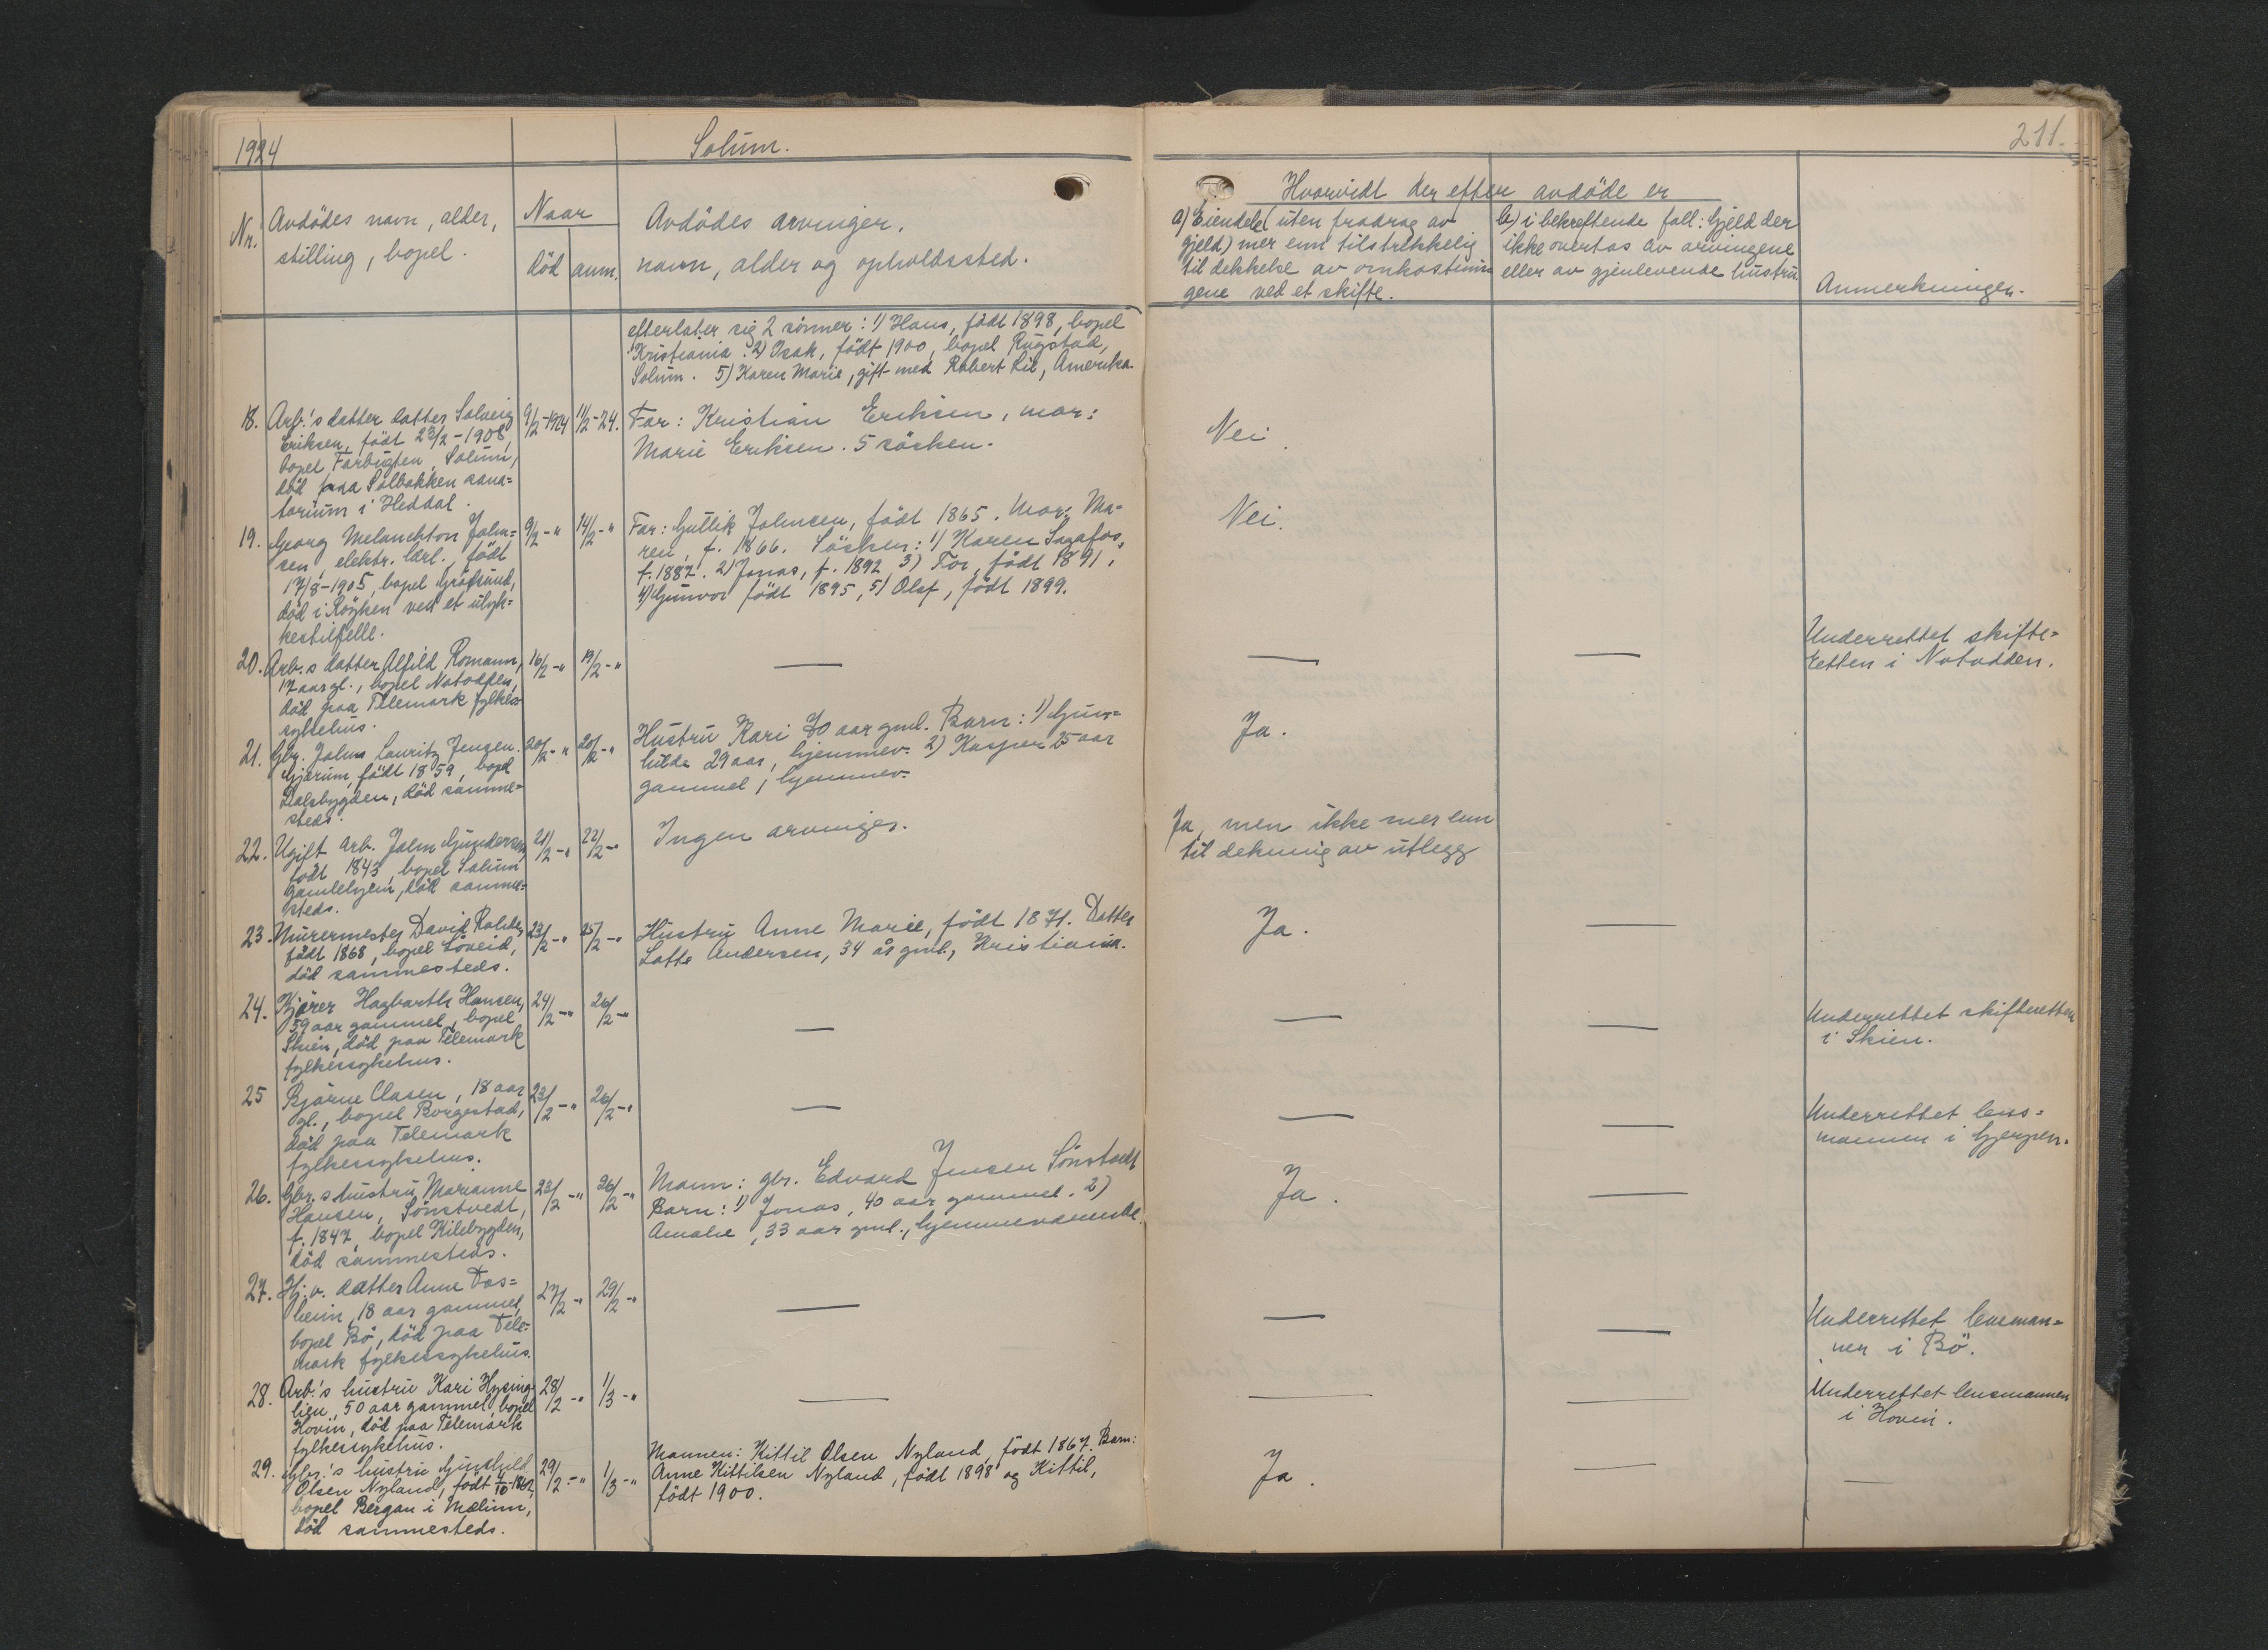 1924
Solum.
211.
Nr.
Avdödes navn, alder,
stilling, bopel.
Naar
död
anm.
Avdödes arvinger,
navn, alder og opholdssted.
Hvorvidt der efter avdöde er
a) Eiendele (uten fradrag av
gjeld) mer enn tilstrekkelig
til dekkelse av omkostnin
gene ved et skifte.
b) i bekreftende fall: Gjeld der
ikke overtas av arvingene
eller av gjenlevende hustru
Anmerkninger.
efterlater sig 2 sönner: 1) Hans, födt 1898, bopel
Kristiania. 2) Isak, födt 1900, bopel Rugstad,
Solum. 5) Karen Marie, gift med Robert Lie, Amerika.
18. Arb.'s datter datter Solveig
Eriksen, födt 23/2-1908,
bopel Farbugten, Solum,
död paa Solbakken sana=
torium i Heddal.
9/2-1924
11/2-24.
Far: Kristian Eriksen, mor:
Marie Eriksen. 5 söcken.
Nei.
19. Georg Melanchton John=
sen, elektr. lærl., födt
17/8-1905, bopel
död i Röyken ved et ulyk=
kestilfelle.
9/2-"
14/2-"
Far: Gullik Johnsen, födt 1865. Mor: Ma=
ren, f. 1866. Söcken: 1) Karen Sagafos,
f. 1887. 2) Jonas, f. 1892 3) Tor, födt 1891,
4) Gunvor födt 1895, 5) Olaf, födt 1899.
Nei.
20. Arb.s datter Alfild Romann,
17 aar gl., bopel Notodden,
död paa Telemark fylkes
sykehus.
16/2-"
19/2-"
—
—
—
Underrettet skifte=
retten i Notodden.
21. Gbr. Johns Lauritz Jensen
Gjærum, födt 1859, bopel
Valebygden, död samme=
steds.
20/2-"
20/2-"
Hustru Kari 70 aar gml. Barn: 1) Gun=
hilda 29 aar, hjemmev. 2) Kasper 25 aar
gammel, hjemmev.
Ja.
22. Ugift arb. John Gundersen
födt 1843, bopel Solum
gamlehjem, död samme=
steds.
21/2-"
22/2-"
Ingen arvinger.
Ja, men ikke mer enn
til dekning av utlegg
23. Murermester David Rohde,
födt 1868, bopel Löveid,
död sammesteds.
23/2-"
25/2-"
Hustru Anne Marie, födt 1871. Datter
Lotte Andersen, 34 år gml., Kristiania.
Ja.
—
24. Kjörer Hagbarth Hansen,
59 aar gammel, bopel
Skien, död paa Telemark
fylkessykehus.
24/2-"
26/2-"
—
—
—
Underrettet skifteretten
i Skien.
25 Bjarne Clasen, 18 aar
gl., bopel Borgestad,
död paa Telemark
fylkessykehus.
23/2-"
26/2-"
—
—
—
Underrettet lens=
mannen i Gjerpen.
26. Gbr.s hustru Marianne
Hansen, Sönstvedt,
f. 1847, bopel Kilebygden,
död sammesteds.
23/2-"
26/2-"
Mann: gbr. Edvard Jensen Sönstvedt
Barn: 1) Jonas, 40 aar gammel. 2)
Amalie, 33 aar gml., hjemmeværende.
Ja.
—
27. Hj. v. datter Anne Dos=
heim, 18 aar gammel,
bopel Bö, död paa Tele=
mark fylkessykehus.
27/2-"
29/2-"
—
—
—
Underrettet lensman=
nen i Bö.
28. Arb.'s hustru Kari Hysing
lien, 50 aar gammel, bopel
Hovin, död paa Telemark
fylkessykehus.
28/2-"
1/3-"
—
—
—
Underrettet lensmannen
i Hovin.
29. Gbr.'s hustru Gunhild
Olsen Nyland, födt 4/10-1862,
bopel Bergan i Mælum,
död sammesteds.
29/2-"
1/3-"
Mannen: Kittil Olsen Nyland, födt 1867. Barn:
Anne Kittilsen Nyland, födt 1898 og Kittil,
födt 1900.
Ja.
—
—